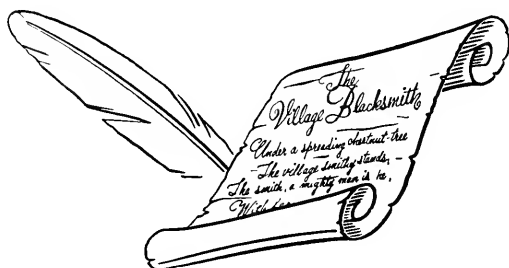 The
Village Blacksmith
Under a spreading chestnut-tree
The village smithy stands,
The smith, a mighty man is he,
With